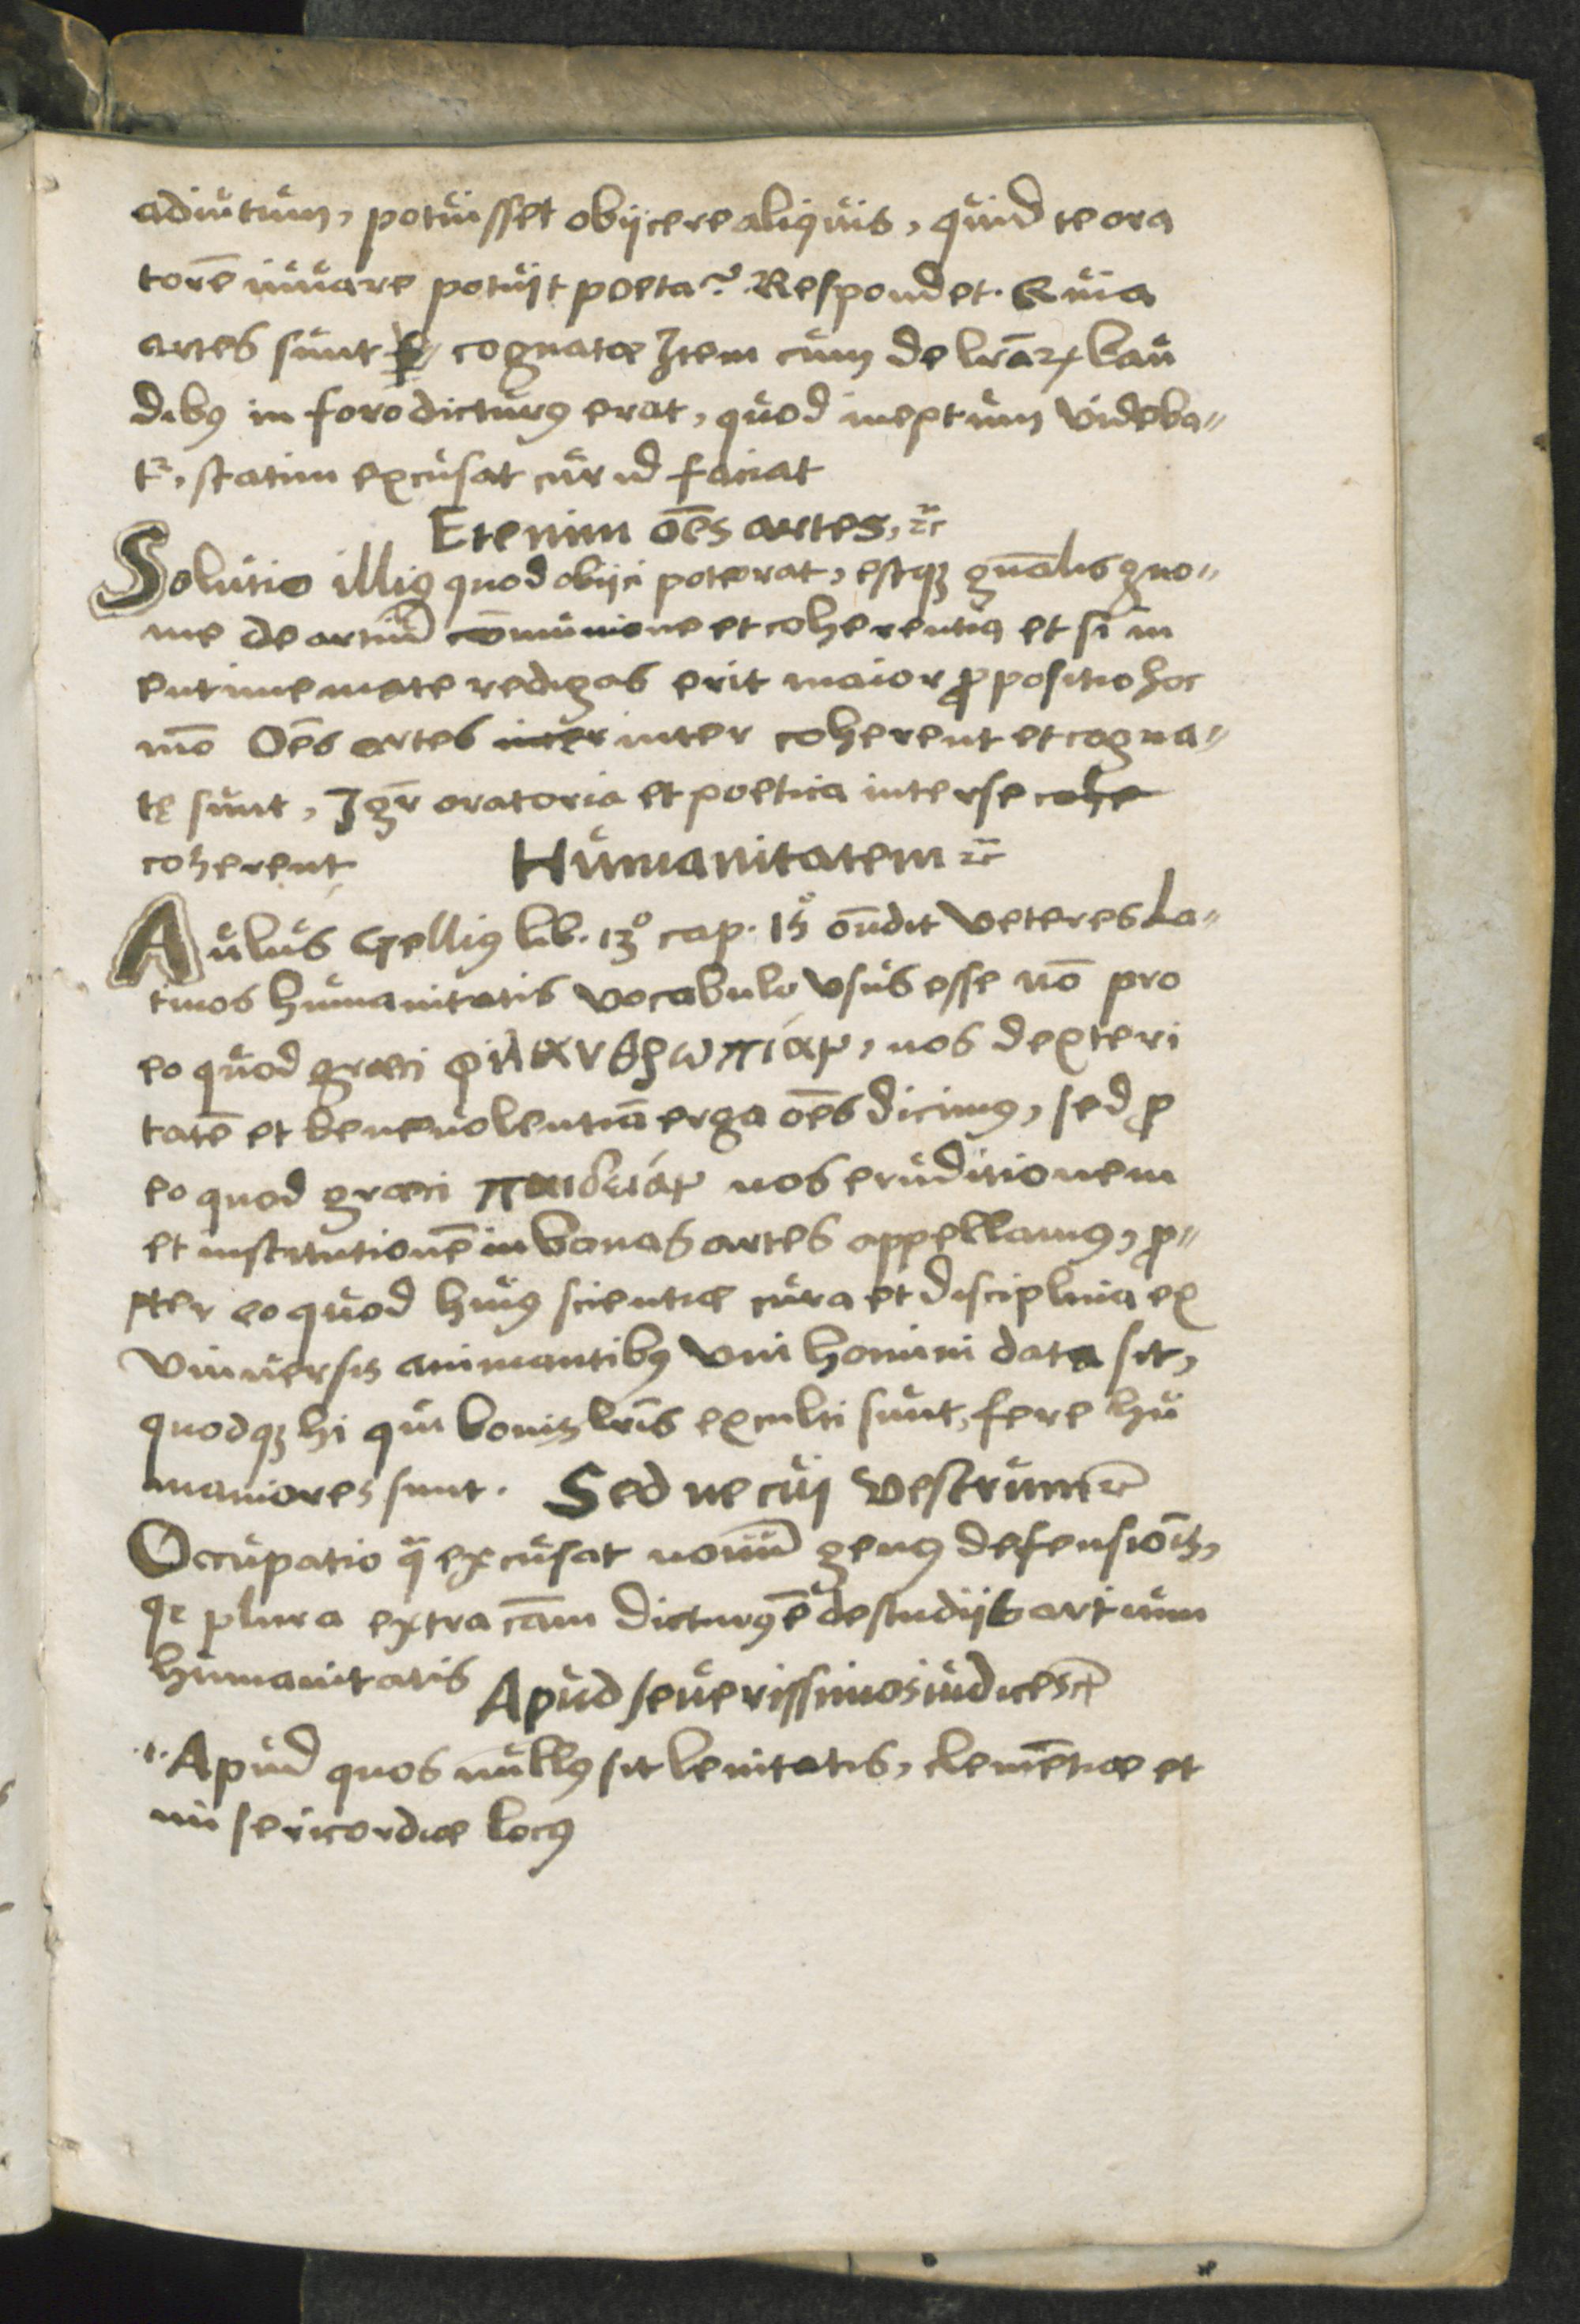 adiutum, potuisset obijcere aliquis, quid te ora
torē iuuare potuit poeta? Respondet. Quia
artes sunt cognatæ Item cum de lr̄aꝝ lau
dibꝰ in foro dicturꝰ erat, quod ineptum videba-
tr̄, statim excusat cur id faciat
Etenim oēs artes, ⁊c̄
Solutio illiꝰ quod obijci poterat, estqꝫ gn̄alis gno-
me de artiū cōmunione et coherentia et si in
entimemate redigas erit maior ꝓpositio hoc
mō Oēs artes inter inter coherent et cogna-
tę sunt, Igr̄ oratoria et poetica inter se cohe
coherent Humanitatem ⁊c̄
Aulus Gelliꝰ lib. 13º cap. 15º oñdit veteres La-
tinos humanitatis vocabulo vsus esse nō pro
eo quod græci φιλανθρωπίαν, nos dexteri
tatē et beneuolentiā erga oēs dicimꝰ, sed ꝓ
eo quod græci παιδείαν nos eruditionem
et institutionē in bonas artes appellamꝰ, ꝓ-
pter eo quod huiꝰ scientiæ cura et disciplina ex
vniuersis animantibꝰ vni homini data sit,
quodqꝫ hi qui bonis lr̄is exculti sunt, fere hu
maniores sunt. Sed ne cuij vestrum ⁊c̄
Occupatio q̄ excusat nouū genꝰ defensiōis,
qꝫ plura extra cām dicturꝰ ē de studijs artium
humanitatis Apud seuerissimos iudices ⁊c̄
.i. Apud quos nullꝰ sit lenitatis, clemētiæ et
misericordiæ locꝰ